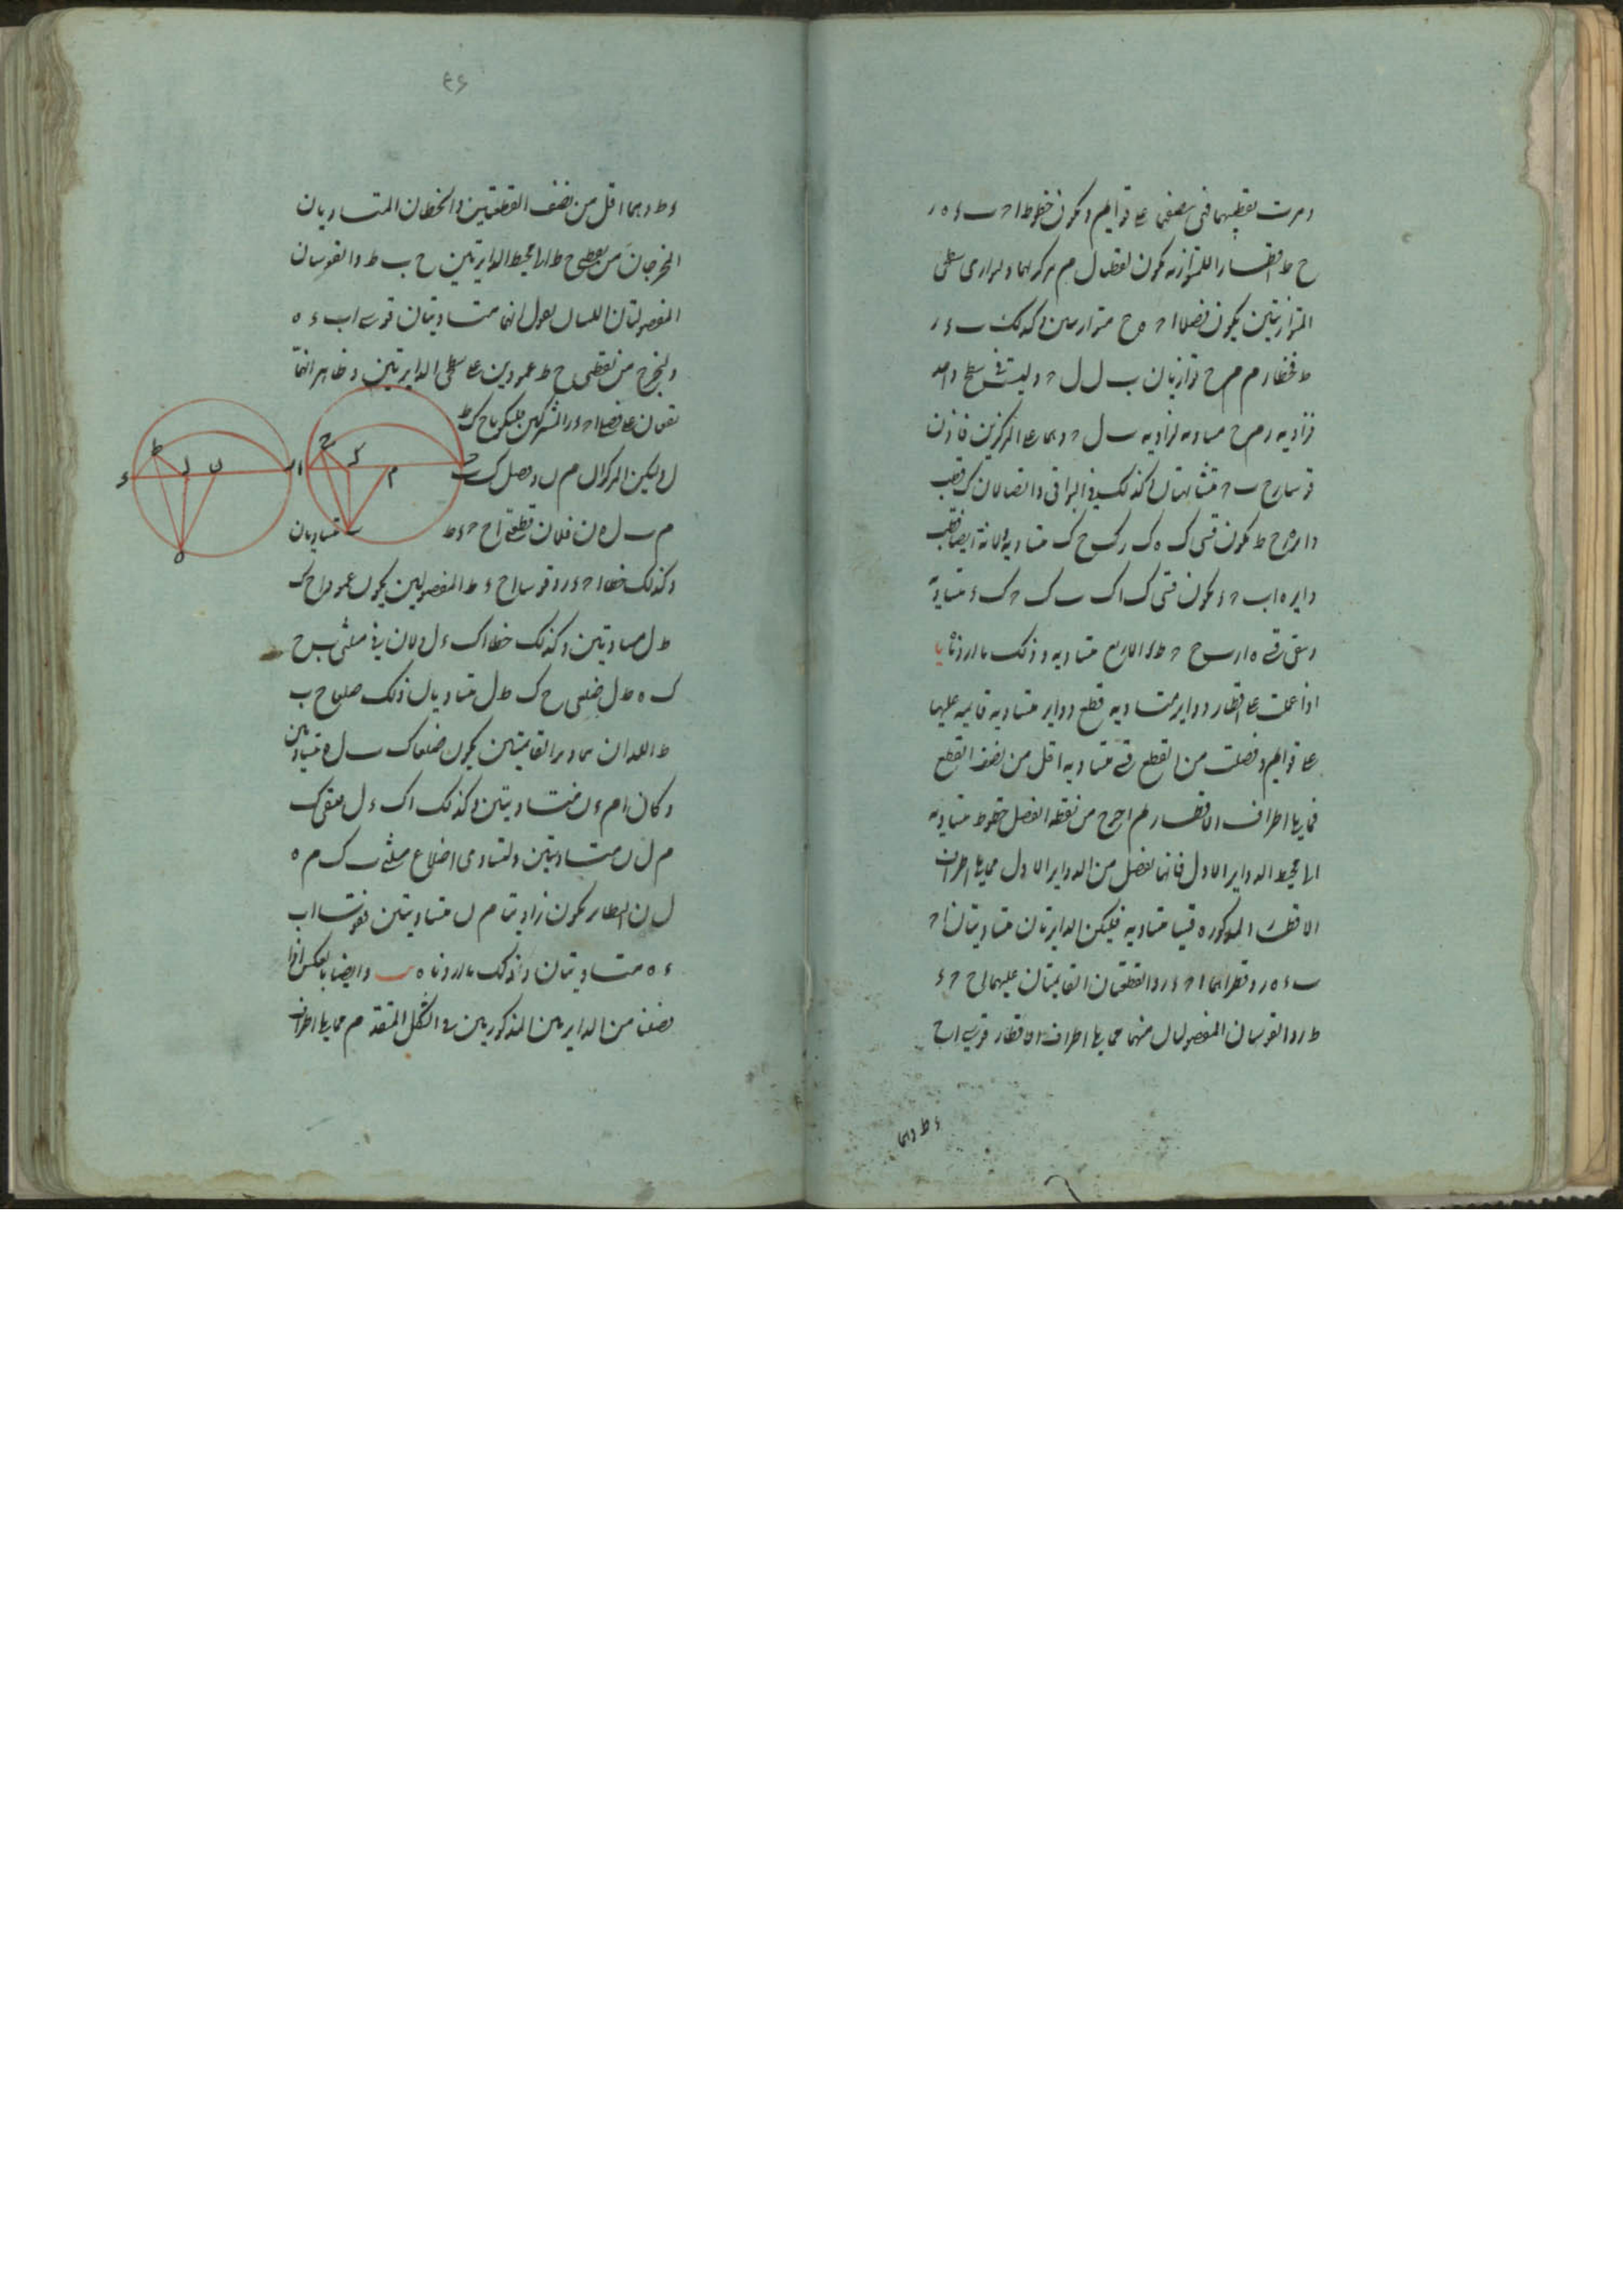 ومرت بقطبيهما فهى ينصفهما على قوايم ويكون خطوط ا ح ب ء ه ر
ح ط اقطارا للمتوازية يكون نقطتا ل م مركزاهما ولتوازى سطحى
المتوازيتين يكون فصلا ا ح ه ح متوازيين وكذلك ب ء ر
ط فخطا ر م م ح توازيان ب ل ل ح وليست فى سطح واحد
فزاويه ر م ح مساويه لزاويه ب ل ح وهما على المركزين فاذن
قوسا ر ح ب ح متشابهتان وكذلك فى البواقى وايضا لان ك قطب
دايره ه ح ط يكون قسى ك ه ك ر ك ح ك متساويه ولانه ايضا قطب
دايره ا ب ح ء يكون قسى ك ا ك ب ك ح ك ء متساوية
وبقى قسى ه ا ر ب ح ح ط ء الاربع متساويه وذلك ما اردناه يا
اذا عملت على اقطار دواير متساويه قطع دواير متساويه قايمه عليها
على قوايم وفصلت من القطع قسى متساويه اقل من نصف القطع
مما يلى اطراف الاقطار ثم اخرج من نقطه الفصل خطوط متساويه
الى محيط الدواير الاول فانها تفصل من الدواير الاول مما يلى اطراف
الاقطار المذكوره قسيا متساويه فليكن الدايرتان متساويتان ا ح
ب ء ه ر وقطراهما ا ح ء ر والقطعتان القايمتان عليهما ا ح ح ء
ط ر والقوسان المفصولتان منهما مما يلى اطراف الاقطار قوسى ا ح
ء ط وهما
٤٦
ء ط وهما اقل من نصف القطعتين والخطان المتساويان
المخرجان من نقطتى ح ط الى محيط الدايرتين ح ب ط ه والقوسان
المفصولتان نقول انهما متساويتان قوسى ا ب ء ه
ولنخرج من نقطتى ح ط عمودين على سطحى الدايرتين وظاهر انهما
يقعان على فصلى ا ح ء ر المشتركين فليكونا ح ك ط
ل وليكن المركزان م ن ونصل ك ب
م ب ل ه ن ه فلان قطعتى ا ح ح ء ط ر متساويتان
وكذلك خطا ا ح ء ر وقوسا ا ح ء ط المفصولتين يكون عمودا ح ك
ط ل متساويين وكذلك خطا ا ك ء ل ولان فى مثلثى ب ح
ك ه ط ل ضلعى ح ك ط ل متساويان وكذلك ضلعا ح ب
ط ه اللذان يوتران القايمتين يكون ضلعا ك ب ل ه متساويين
وكان ا م ء ن متساويتين وكذلك ا ك ء ل فبقى ك
م ل ن متساويتين ولتساوى اضلاع مثلثى ب ك م ه
ل ن النظاير يكون زاويتا م ن متساويتين فقوسا ا ب
ء ه متساويتان وذلك ما اردناه يب وايضا بالعكس اذا
فصلنا من الدايرتين المذكورتين فى الشكل المتقدم مما يلى اطراف
ء ط ل ن ه ر
ا ح ك م ح ب